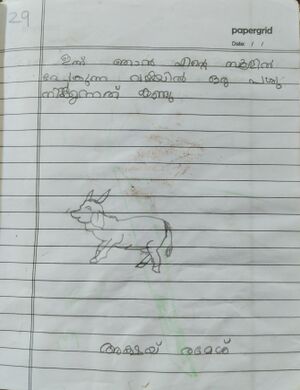 29
papergrid
Date: / /
ഇന്ന് ഞാൻ എന്റെ സ്കൂളിൽ
പോകുന്ന വഴിയിൽ ഒരു പശു
നിൽക്കുന്നത് കണ്ടു
അക്ഷയ് രമേശ്